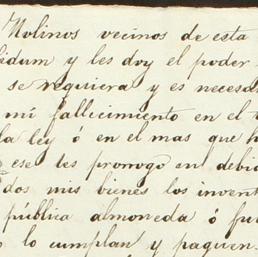 Molinos vecinos de esta
idum y les doy el poder
se requiera y es necesa
mi fallecimiento en el
la ley ó en el mas que h
ese les prorrogo en debid
dos mis bienes los invent
pública almoneda ó fu
lo cumplan y paguen